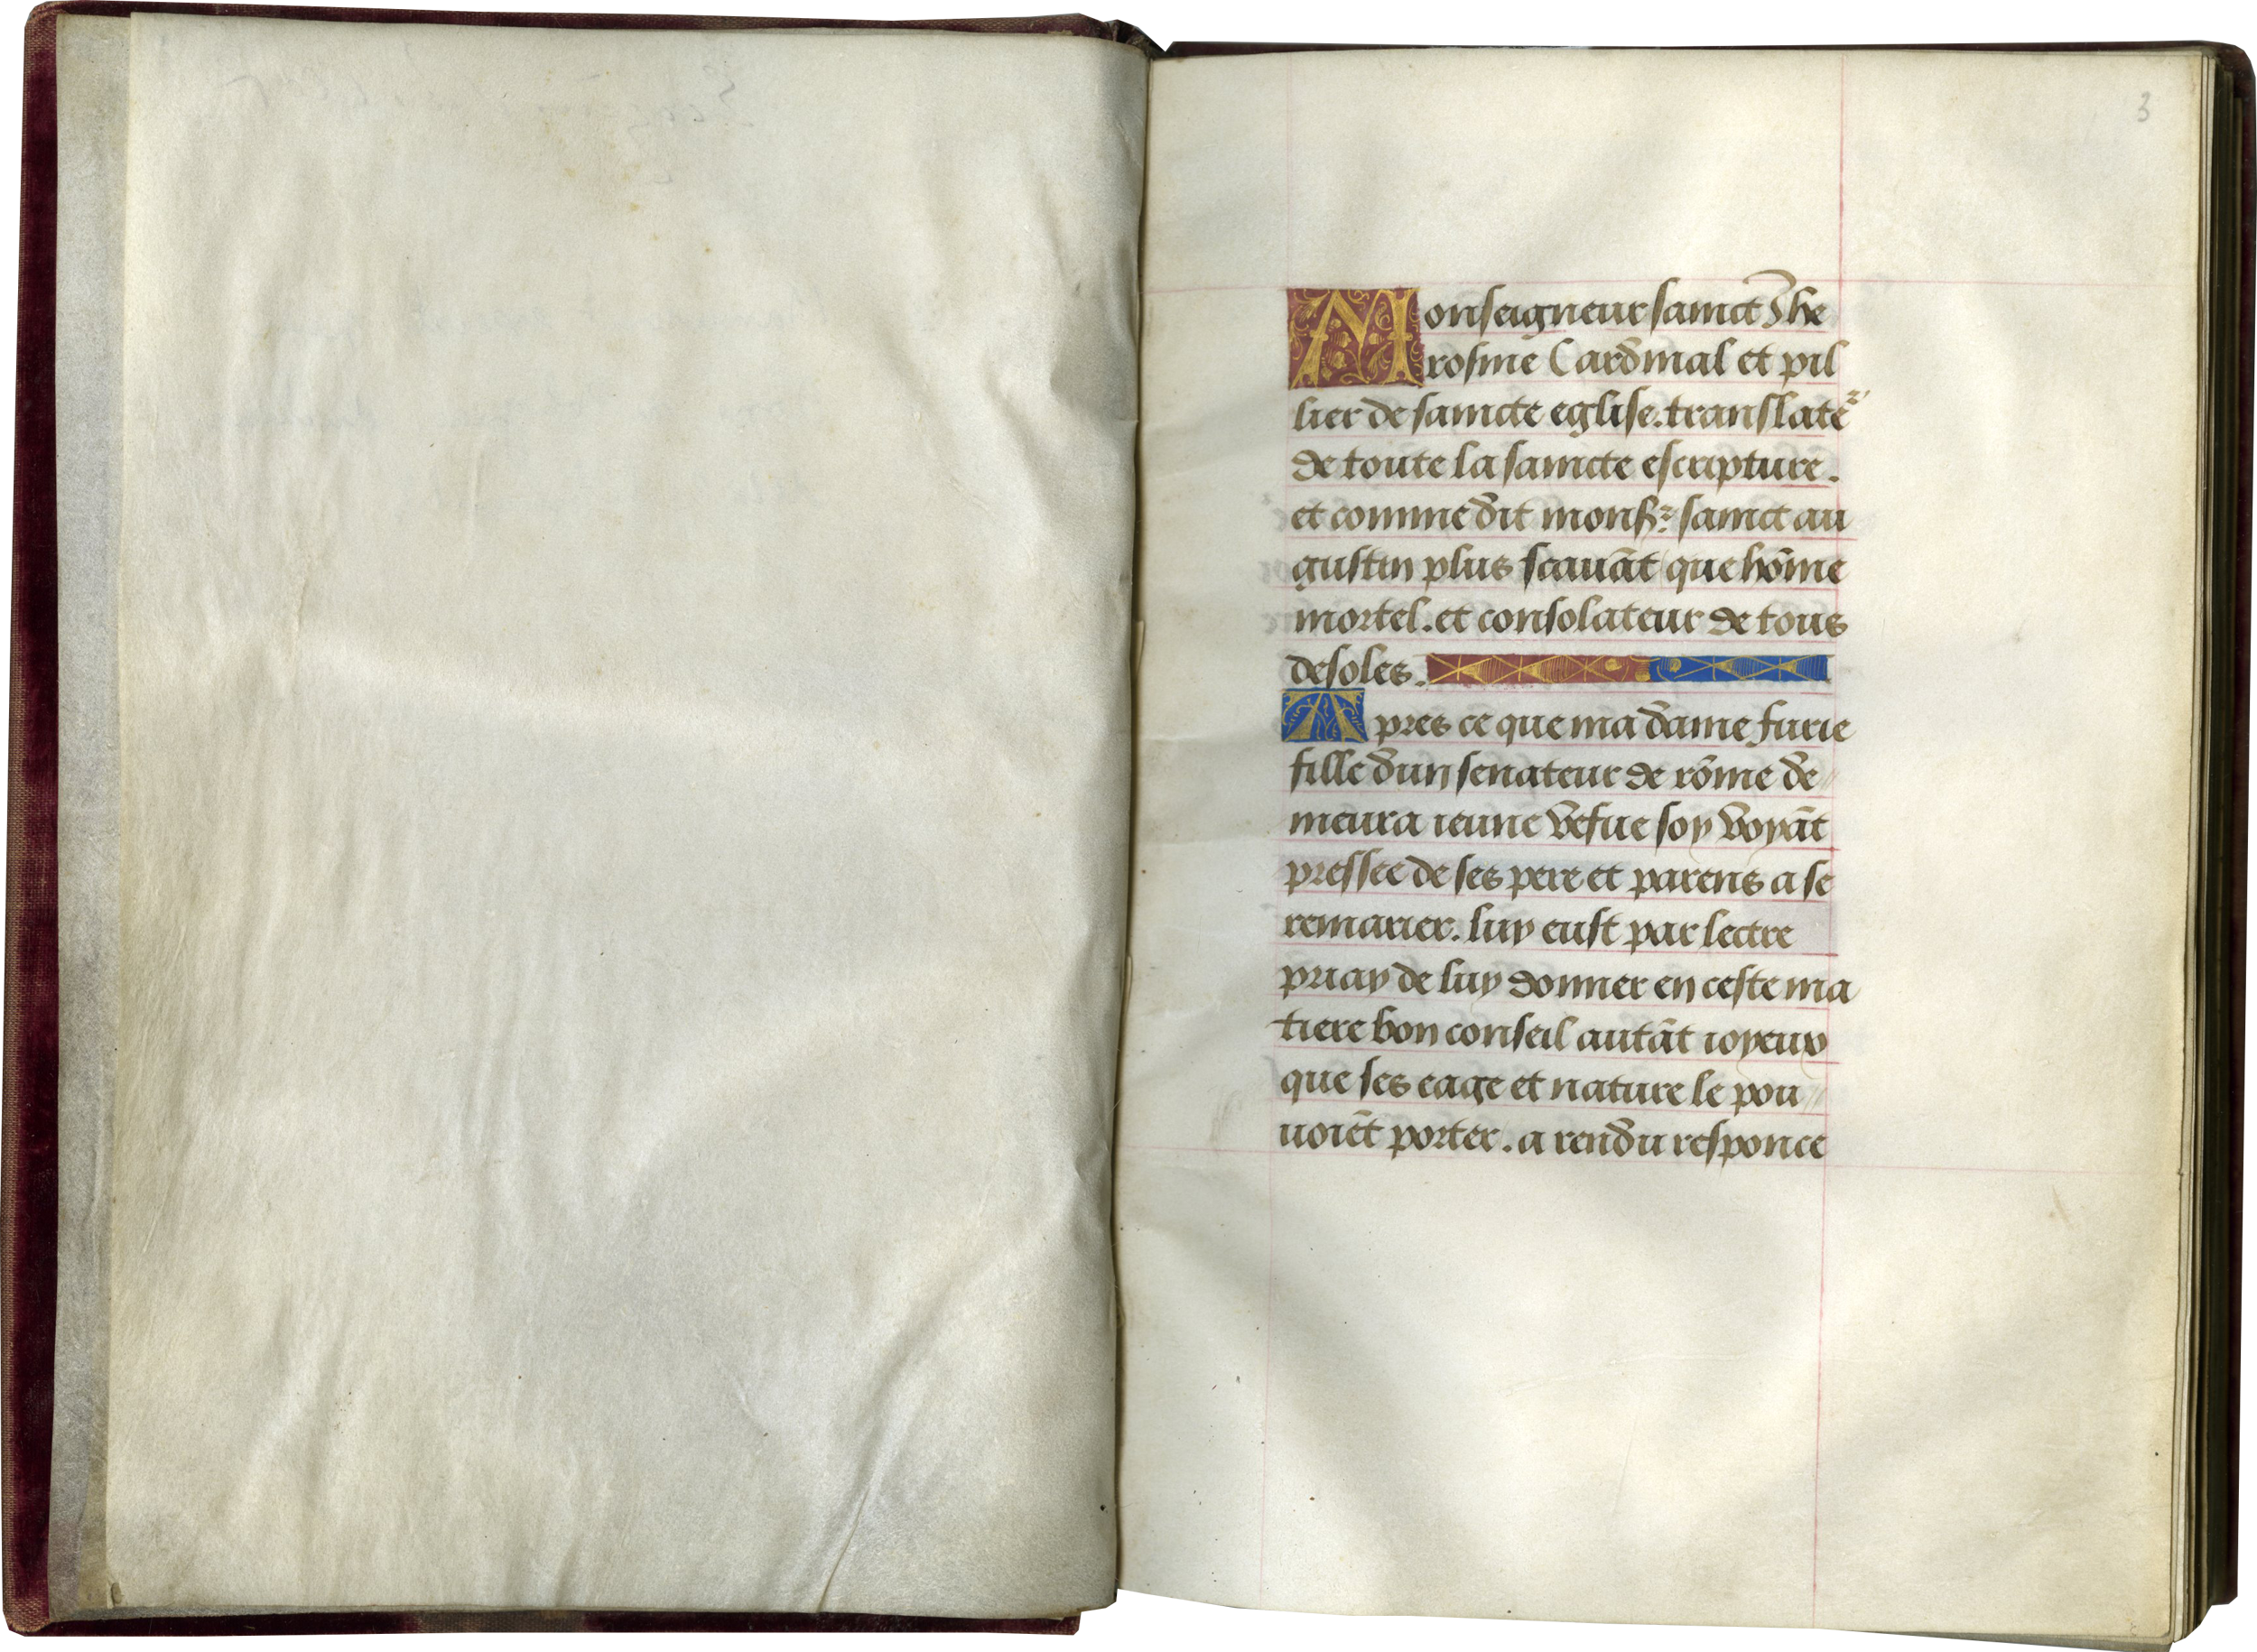 3
Monseigneur sainct Jhe
rosme Cardinal et pil
lier de saincte eglise. translateᷣ
de toute la saincte escripture.
et comme dit monsʳ sainct au
gustin plus scauāt que hōme
mortel. et consolateur de tous
desoles.
Apres ce que ma dame furie
fille dun senateur de rōme de
meura ieune vefue soy voyāt
pressee de ses pere et parens a se
remarier. luy eust par lectre
priay de luy donner en ceste ma
tiere bon conseil autāt ioyeux
que ses eage et nature le pou
uoiēt porter. a rendu responce